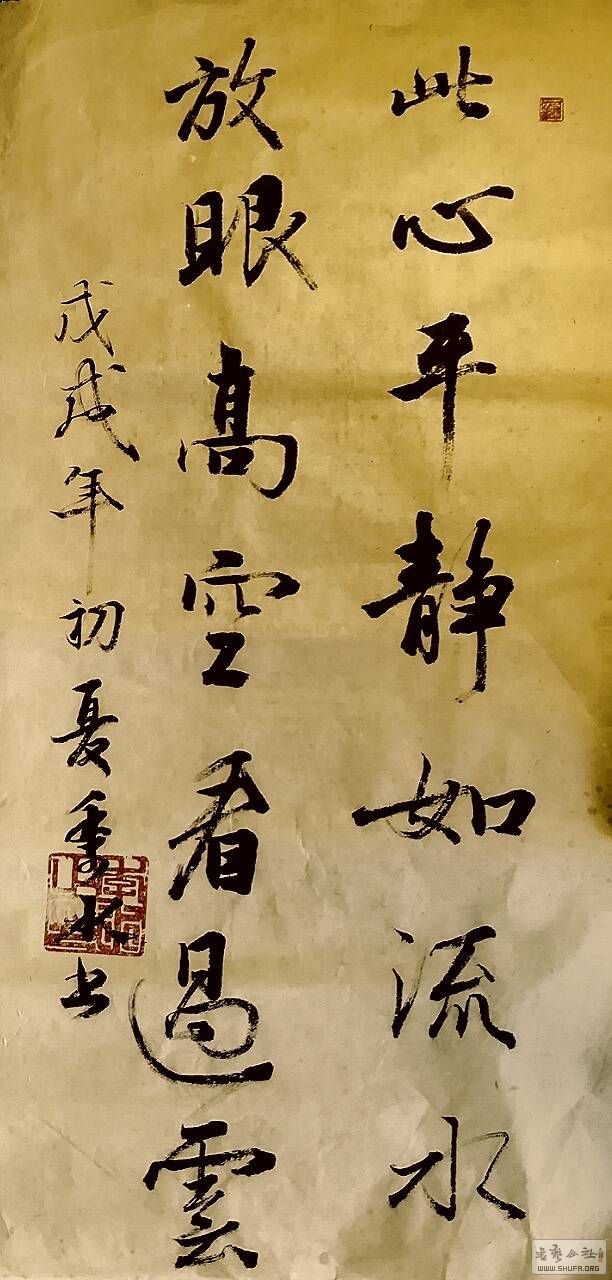 此心平静如流水
放眼高空看過雲
戊戌年初夏季水书
WWW.SHUFA.ORG